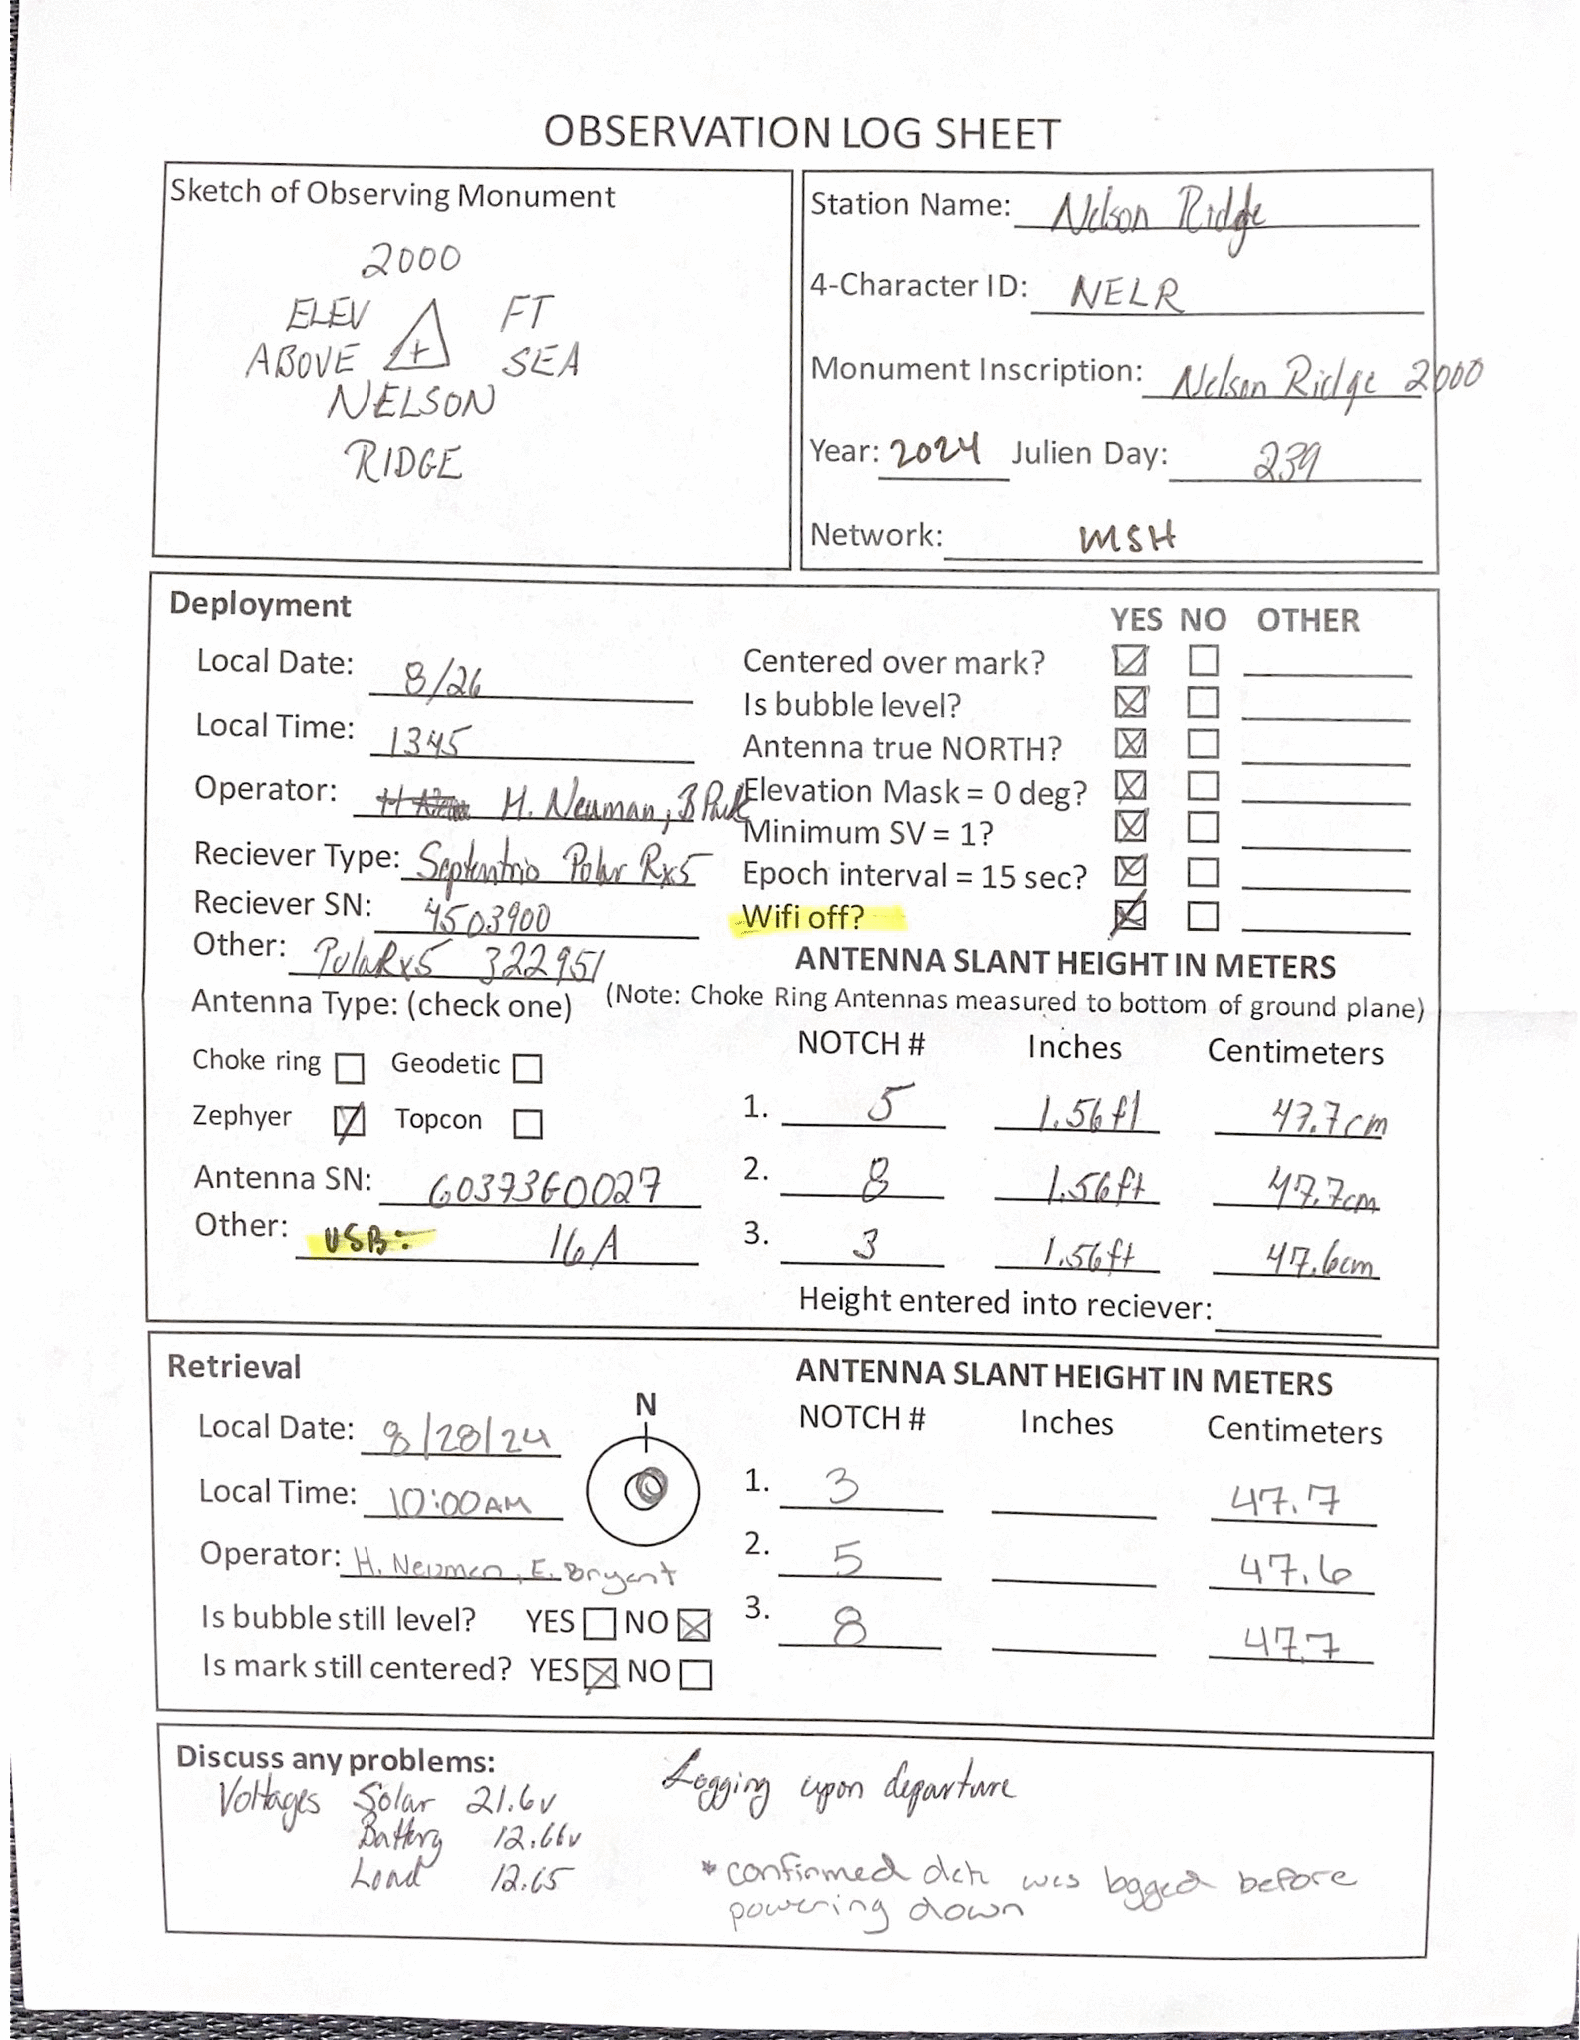 OBSERVATION LOG SHEET
Sketch of Observing Monument
2000
ELEV FT
ABOVE + SEA
NELSON
RIDGE
Station Name: Nelson Ridge
4-Character ID: NELR
Monument Inscription: Nelson Ridge 2000
Year: 2024 Julien Day: 239
Network: MSH
Deployment
YES NO OTHER
Local Date: 8/26
Local Time: 1345
Operator: H. Neuman, B
Reciever Type: Septentrio Polar Rx5
Reciever SN: 4503900
Other: PolaRx5 322951
Centered over mark?
Is bubble level?
Antenna true NORTH?
Elevation Mask = 0 deg?
Minimum SV = 1?
Epoch interval = 15 sec?
Wifi off?
Antenna Type: (check one)
Choke ring Geodetic
Zephyer Topcon
Antenna SN: 6037360027
Other: USB: 16A
ANTENNA SLANT HEIGHT IN METERS
(Note: Choke Ring Antennas measured to bottom of ground plane)
NOTCH # Inches Centimeters
1. 5 1.56ft 47.7cm
2. 8 1.56ft 47.7cm
3. 3 1.56ft 47.6cm
Height entered into reciever:
Retrieval
Local Date: 8/28/24
Local Time: 10:00AM
Operator: H. Neuman, E. Bryant
Is bubble still level? YES NO
Is mark still centered? YES NO
N
ANTENNA SLANT HEIGHT IN METERS
NOTCH # Inches Centimeters
1. 3 47.7
2. 5 47.6
3. 8 47.7
Discuss any problems:
Voltages Solar 21.6v
Battery 12.66v
Load 12.65
Logging upon departure
*confirmed data was logged before
powering down